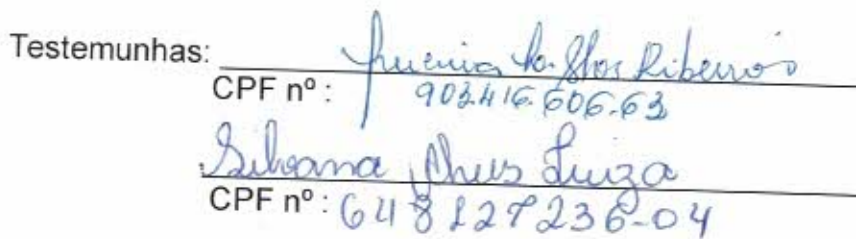 Testemunhas: Ribeiro
CPF nº : 903.416.606.63
Silvana Alves Luiza
CPF nº : 648127236-04